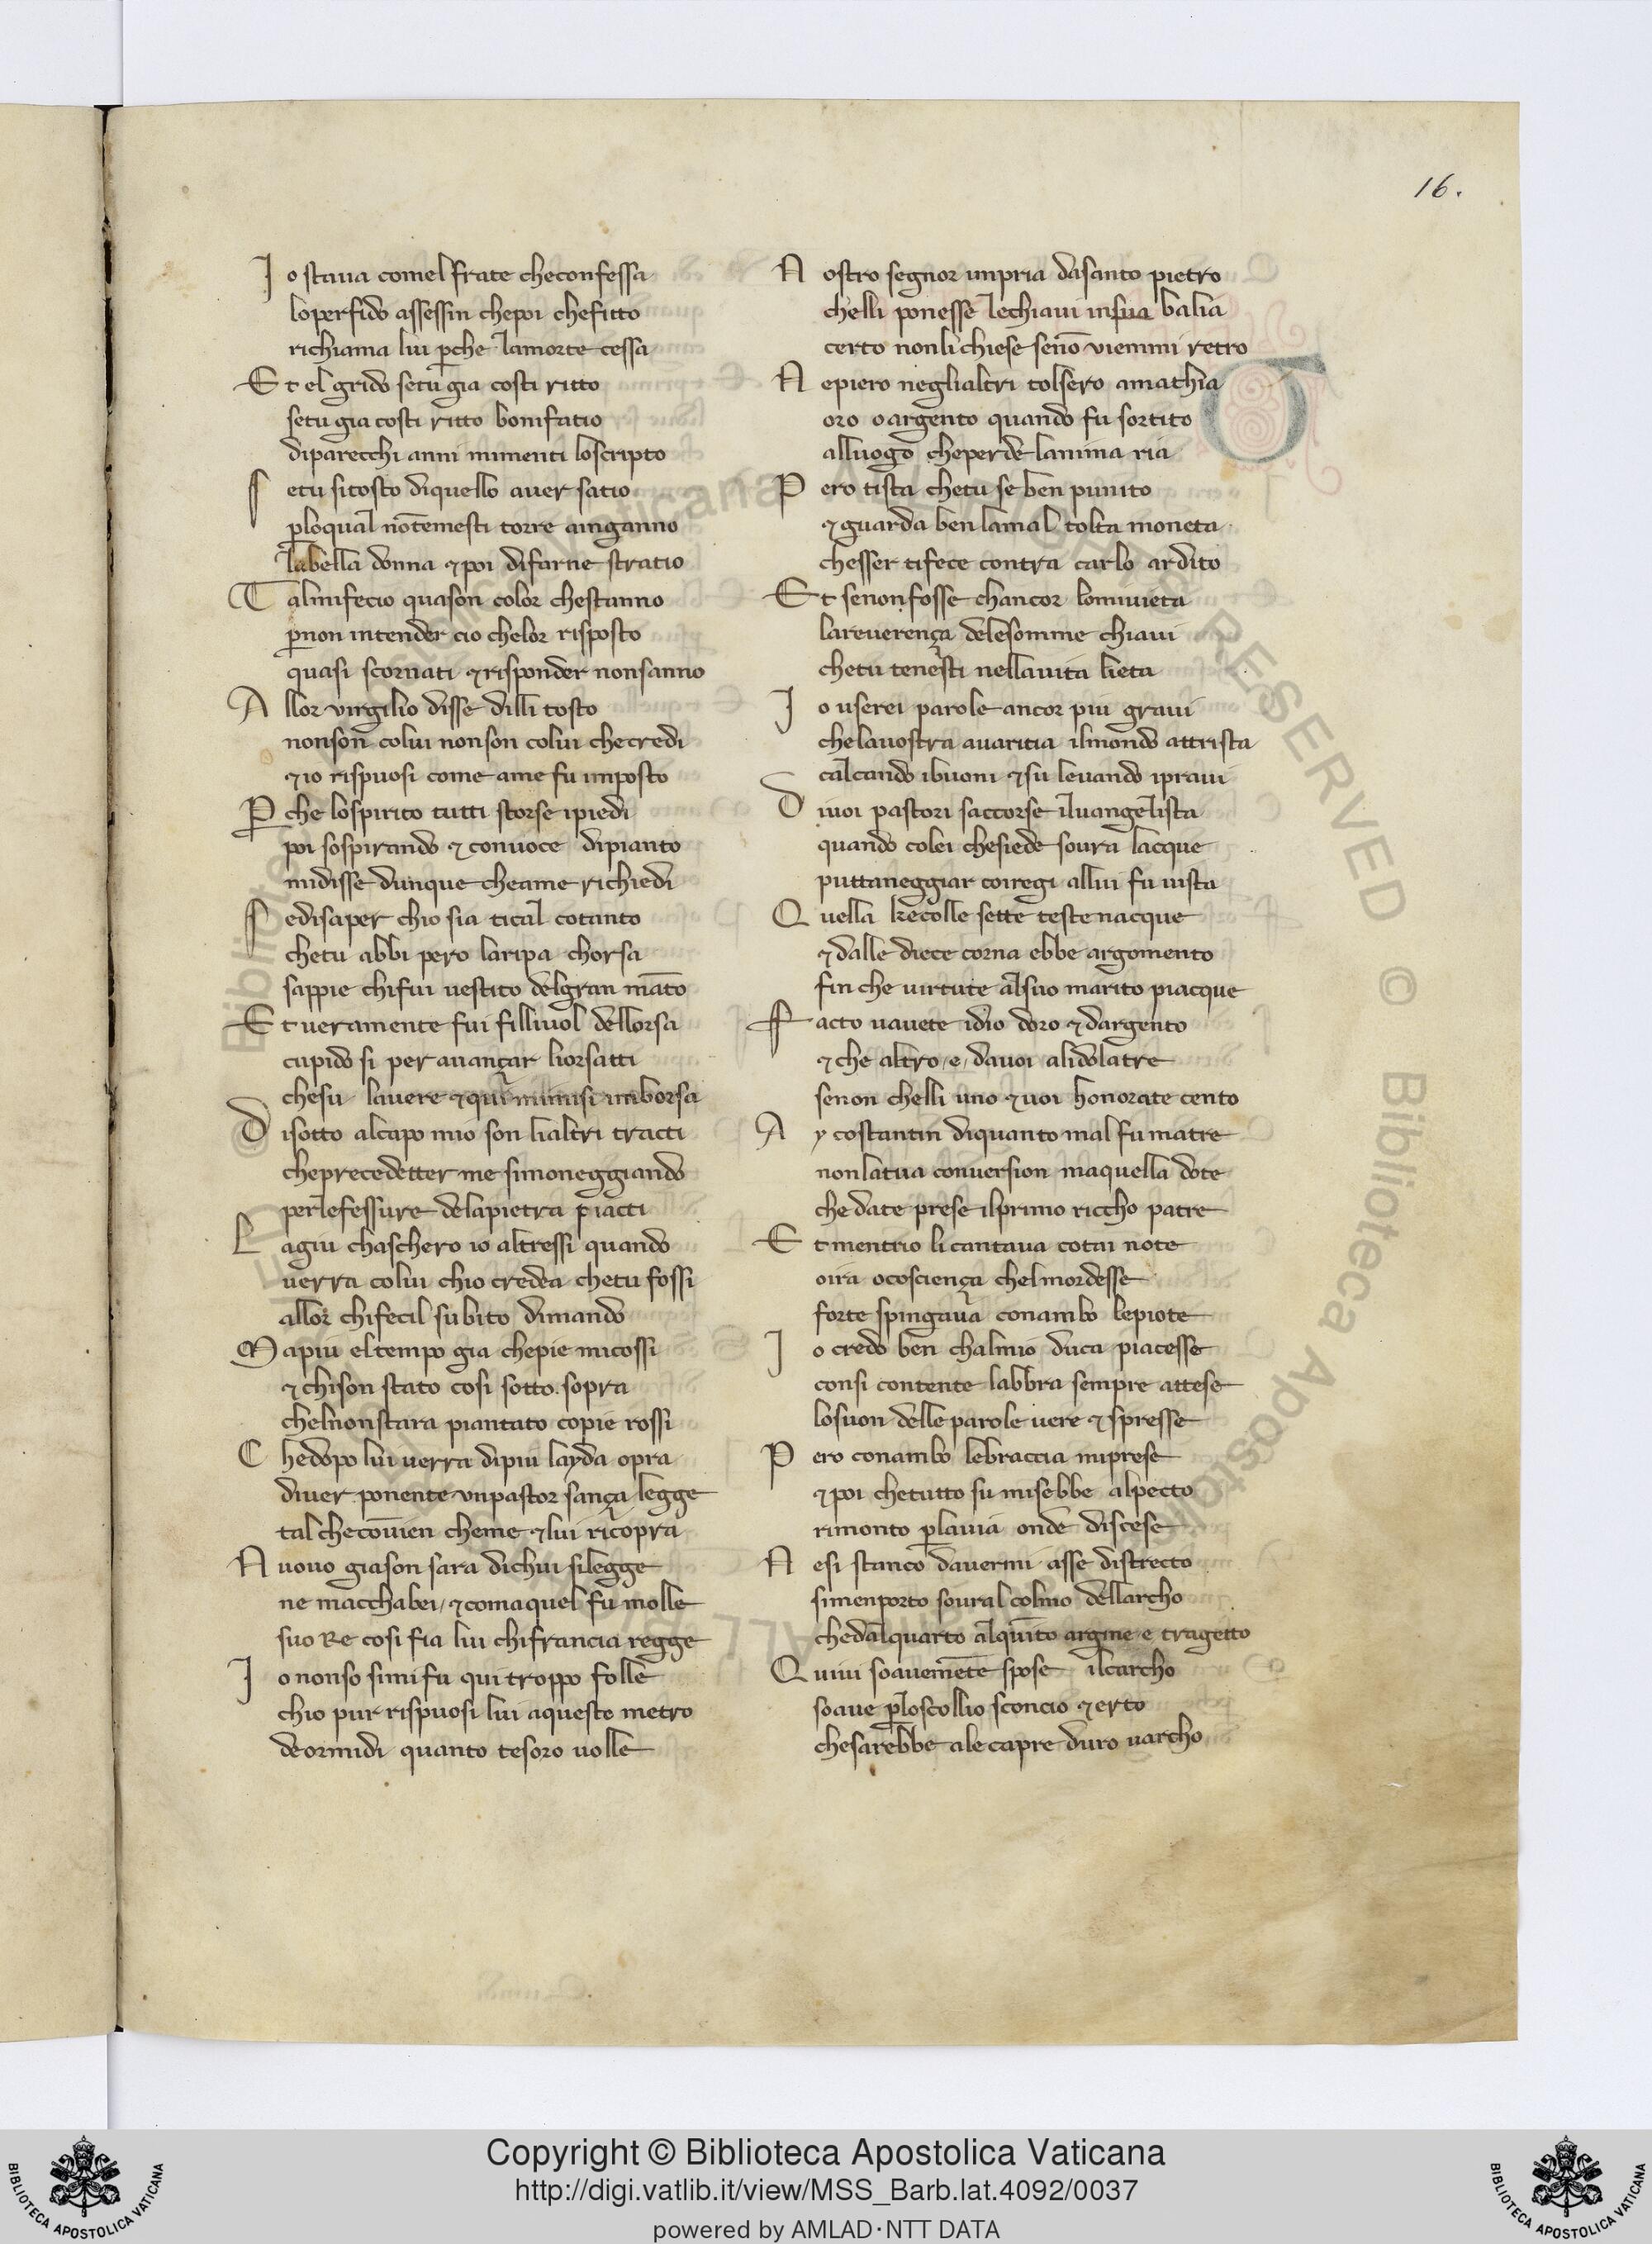 16.
Io staua comel frate checonfessa
loperfido assessin chepoi chefitto
richiama lui p̲che lamorte cessa
Et el grido setu gia costi ritto
setu gia costi ritto bonifatio
diparecchi anni mimenti loscripto
Setu sitosto diquello auer satio
p̲loqual nōtemesti torre ainganno
labella donna ⁊ poi difarne stratio
Talmifecio quason color chestanno
p̲non intender cio chelor risposto
quasi scornati ⁊ risponder nonsanno
Allor virgilio disse dilli tosto
nonson colui nonson colui checredi
⁊ io rispuosi come ame fu imposto
P̲che lospirito tutti storse ipiedi
poi sospirando ⁊ conuoce dipianto
midisse dunque cheame richiedi
Sedisaper chio sia tical cotanto
chetu abbi pero laripa chorsa
sappie chifui uestito delgran māto
Et ueramente fui filliuol dellorsa
cupido si per auançar liorsatti
chesu lauere ⁊ qui mimisi imborsa
Disotto alcapo mio son lialtri tracti
cheprecedetter me simoneggiando
perlefessure delapietra piatti
Lagiu chaschero io altressi quando
uerra colui chio credea chetu fossi
allor chifecil subito dimando
Mapiu eltempo gia chepie micossi
⁊ chison stato cosi sotto sopra
chelnonstara piantato copie rossi
Chedopo lui uerra dipiu layda opra
diuer ponente vnpastor sança legge
tal checōuien cheme ⁊ lui ricopra
Nuouo giason sara dichui silegge
ne macchabei, ⁊ comaquel fu molle
suo Re cosi fia lui chifrancia regge
Io nonso simifu qui troppo folle
chio pur rispuosi lui aquesto metro
deormidi quanto tesoro uolle
Nostro segnor impria dasanto pietro
chelli ponesse lechiaui insua balia
certo nonli chiese senō viemmi retro
Nepiero neglialtri tolsero amathia
oro oargento quando fu sortito
alluogo cheperde lanima ria
Pero tista chetu se ben punito
⁊ guarda ben lamal tolta moneta
chesser tifece contra carlo ardito
Et senonfosse chancor lomiuieta
lareuerença delesomme chiaui
chetu tenesti nellauita lieta
Io userei parole ancor piu graui
chelauostra auaritia ilmondo attrista
calcando ibuoni ⁊ su leuando ipraui
Diuoi pastori saccorse iluangelista
quando colei chesiede soura lacque
puttaneggiar coiregi allui fu uista
Quella lzecolle sette teste nacque
⁊ dalle diece corna ebbe argomento
fin che uirtute alsuo marito piacque
Facto uauete idio doro ⁊ dargento
⁊ che altro, e, dauoi alidolatre
senon chelli uno ⁊ uoi honorate cento
Ay costantin diquanto mal fu matre
nonlatua conuersion maquella dote
chedate prese ilprimo riccho patre
Et mentrio li cantaua cotai note
oira ocosciença chelmordesse
forte spingaua conambo lepiote
Io credo ben chalmio duca piacesse
consi contente labbra sempre attese
losuon delle parole uere ⁊ spresse
Pero conambo lebraccia miprese
⁊ poi chetutto su misebbe alpecto
rimonto p̲lauia onde discese
Nesi stanco dauermi asse distrecto
simenporto soural colmo dellarcho
chedalquarto alquīto argine e tragetto
Quiui soauemēte spose ilcarcho
soaue p̲loscollio sconcio ⁊ erto
chesarebbe ale capre duro uarcho
Copyright © Biblioteca Apostolica Vaticana
http://digi.vatlib.it/view/MSS_Barb.lat.4092/0037
powered by AMLAD·NTT DATA